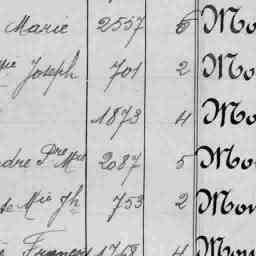 Marie 2557 6 Mo
pie Joseph 701 2 Mo
1873 4 Mo
dre Pre Mie 2087 5 Mo
Mie Jh 753 2 Mou
François 1768 4 Mou